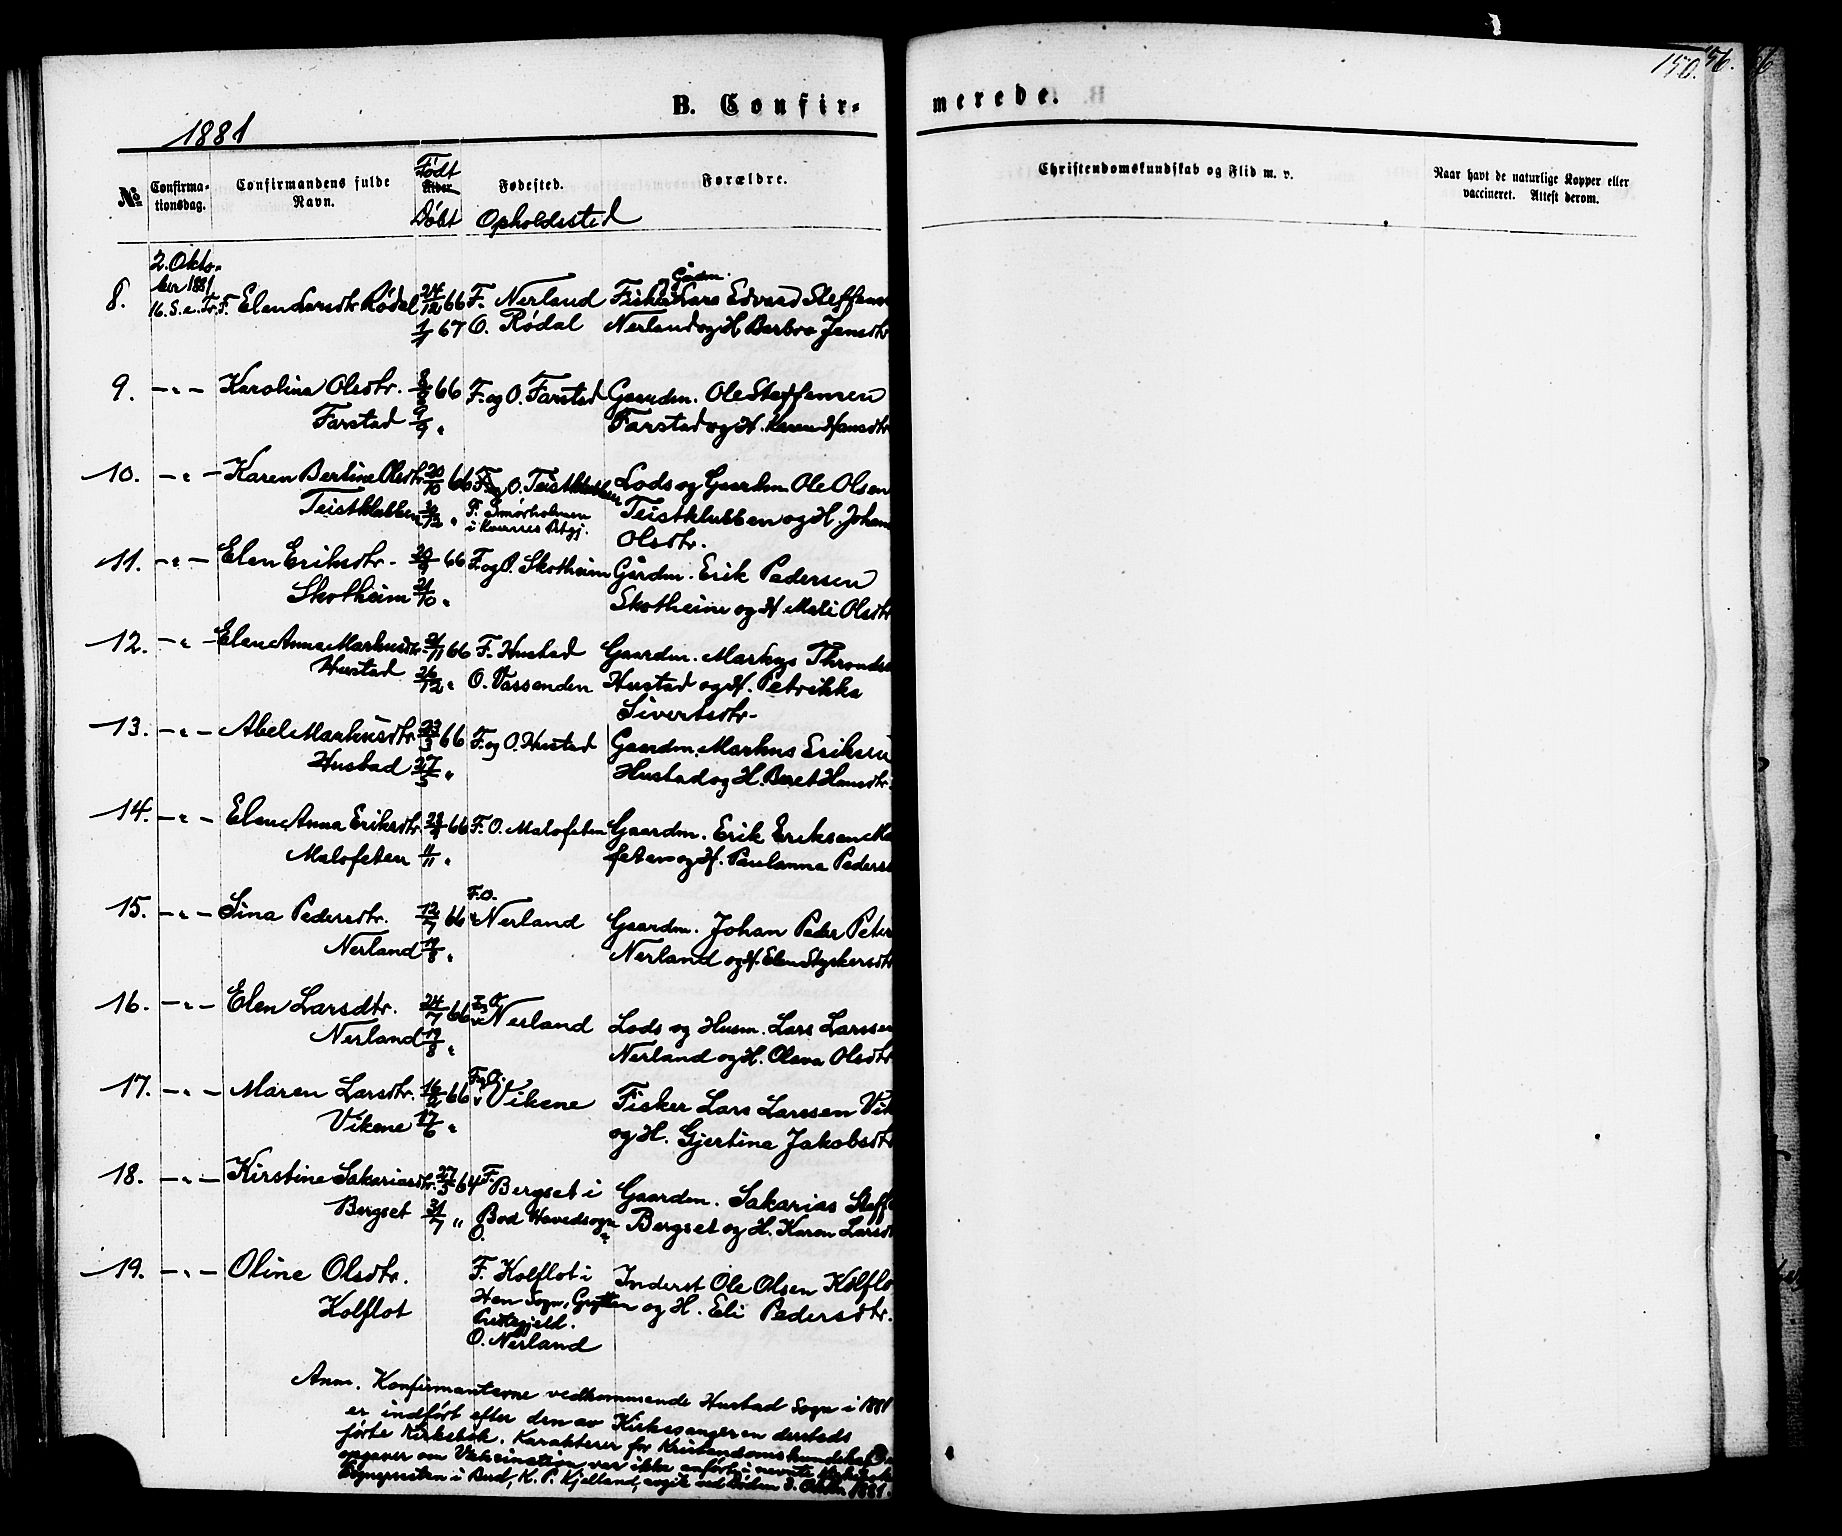 B. Confir-
merede.
150.
56.
1881
No
Confirma-
tionsdag.
Confirmandens fulde
Navn.
Født
Alder
Døbt
Fødested.
Opholdssted
Forældre.
Christendomskundskab og Flid m. v.
Naar havt de naturlige Kopper eller
vaccineret. Attest derom.
2. Okto-
ber 1881
16. S. e. Tr.
8. Elen Larsdtr Rødal 24/12 66 F. Nerland Fisker Gaardm. Lars Edvard Steffens
1/1 67 O. Rødal Nerland og H Barbro Jensdtr
9. - " - Karolina Olsdtr. 66 F. og O. Farstad Gaardm. Ole Steffensen
Farstad 9/9 " Farstad og H. Karen Hansdtr
10. - " - Karen Bertine Olsdtr 20/10 66 F. og O. Teistklubben Lods og Gaardm Ole Olsen
Teistklubben " F. Smørholmen Teistklubben og H. Johan
i Kvernes Pstgj. Olsdtr.
11. - " - Elen Eriksdtr. 66 F. og O. Skotheim Gårdm. Erik Pedersen
Skotheim 21/10 " Skotheim og H Mali Olsdtr
12. - " - Elen Anna Markusdtr. 21/11 66 F. Hustad Gaardm. Markus Throndse
Hustad 26/12 " O. Vassenden Hustad og H. Petrikka
Sivertsdtr.
13. - " - Abel Markusdtr. 23/3 66 F. og O. Hustad Gaardm. Markus Eriksen
Hustad 27/5 " Hustad og H. Beret Hansdtr.
14. - " - Elen Anna Eriksdtr. 66 F. O. Malofeten Gaardm. Erik Eriksen Ma
Malofeten 11/11 " feten og H. Paulanna Peders
15. - " - Sina Pedersdtr. 12/7 66 F. O. Nerland Gaardm. Johan Peder Peter
Nerland 19/8 " Nerland og H. Elen Styrkersdtr
16. - " - Elen Larsdtr. 24/7 66 F. O. Nerland Lods og Husm. Lars Larssen
Nerland 19/8 " Nerland og H. Olava Olsdtr
17. - " - Maren Larsdtr. 16/2 66 F. og O. Vikene Fisker Lars Larssen Vik
Vikene 17/6 " og H. Gjertina Jakobsdtr
18. - " - Kirstine Sakariasdtr. 27/5 64 F. Bergset i Gaardm. Sakarias Steff
Bergset 31/7 " Bod Hovedsogn Bergset og H. Karen Larsd
O. "
19. - " - Oline Olsdtr. F. Kolflot i Inderst Ole Olsen Kolflo
Kolflot Hen Sogn, Grytten og H. Eli Pedersdtr.
Præstegjeld.
O. Nerland
Anm. Konfirmanterne vedkommende Hustad Sogn i 1881
er indført efter den av Kirkesangeren dersteds
førte Kirkebok. Karakterer for Kristendomskundskab og
opgaver om Vaksination var ikke anført i nevnte Kirkebok
Sogneprsten i Bud, K. P. Kjelland, avgik ved Døden 3. Oktbr 1881.